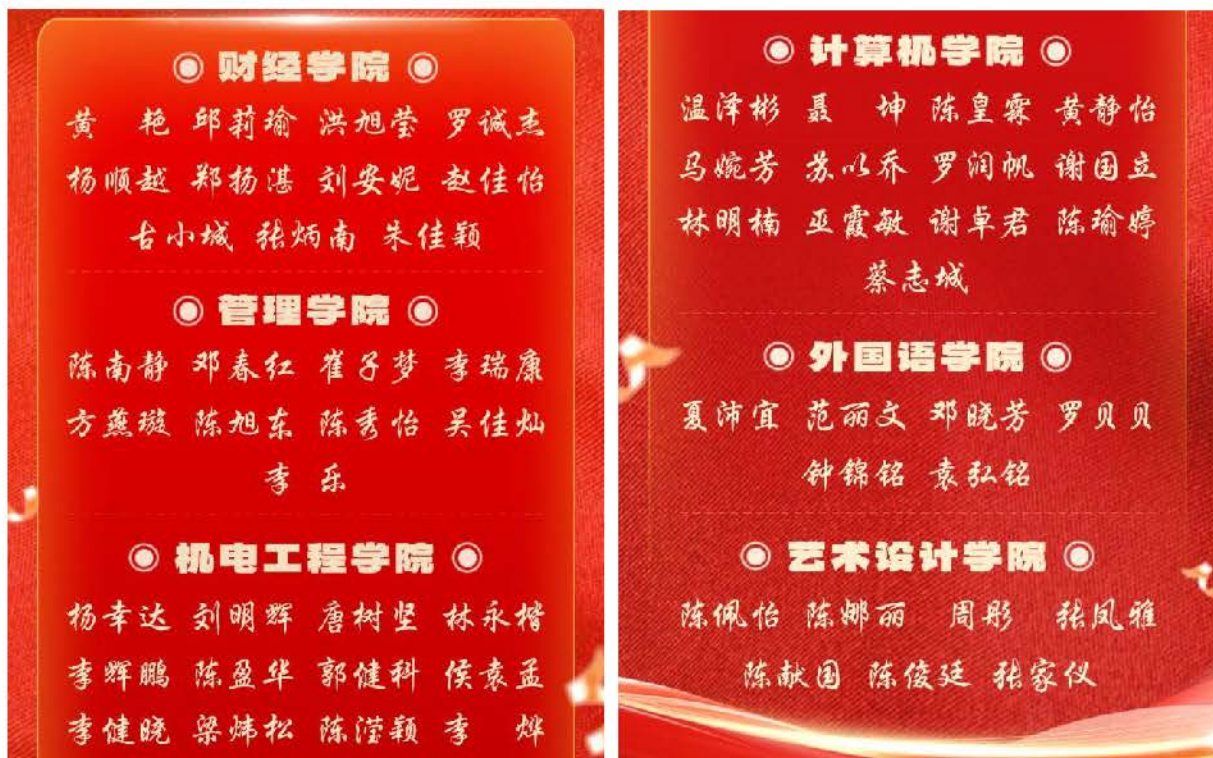 财经学院
黄 艳 邱莉瑜 洪旭莹 罗诚杰
杨顺越 郑扬湛 刘安妮 赵佳怡
古小城 张炳南 朱佳颖
管理学院
陈南静 邓春红 崔子梦 李瑞康
方燕璇 陈旭东 陈秀怡 吴佳灿
李 乐
机电工程学院
杨幸达 刘明辉 唐树坚 林永楷
李辉鹏 陈盈华 郭健科 侯袁孟
李健晓 梁炜松 陈滢颖 李 烨
计算机学院
温泽彬 聂 坤 陈皇霖 黄静怡
马婉芳 苏以乔 罗润帆 谢国立
林明楠 巫霞敏 谢卓君 陈瑜婷
蔡志城
外国语学院
夏沛宜 范丽文 邓晓芳 罗贝贝
钟锦铭 袁弘铭
艺术设计学院
陈佩怡 陈娜丽 周彤 张凤雅
陈献国 陈俊廷 张家仪